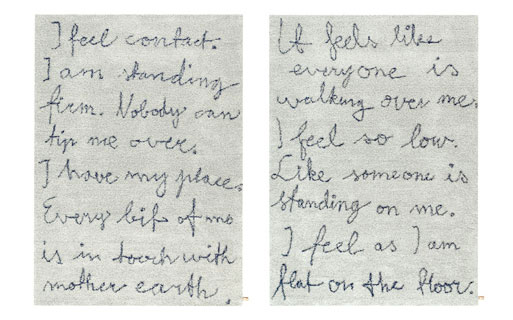 I feel contact.
I am standing
firm. Nobody can
tip me over.
I have my place.
Every bit of me
is in touch with
mother earth.
It feels like
everyone is
walking over me.
I feel so low.
Like someone is
standing on me.
I feel as I am
flat on the floor.